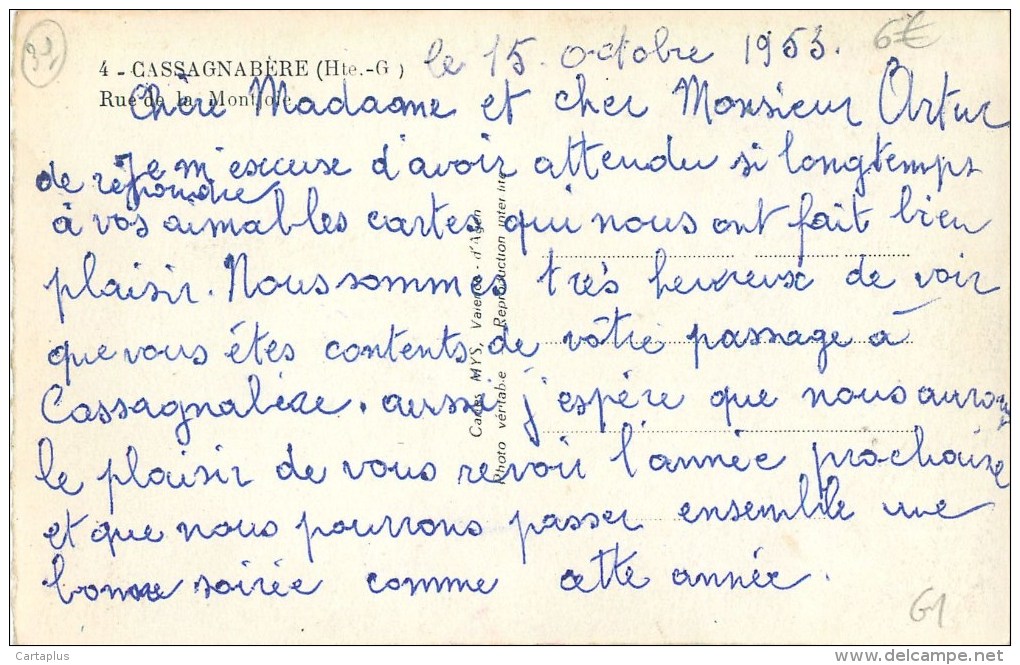 31
6€
4 - CASSAGNABÈRE (Hte.-G )
Rue de la Montjoie
le 15 octobre 1953.
Chère Madaome et cher Monsieur Artur
Je m'escuse d'avoir attendu si longtemps
de répondre
à vos aimables cartes qui nous ont fait bien
plaisir. Nous sommes très heureux de voir
que vous êtes contents de vôtre passage à
Cassagnabère. aussi j'espère que nous aurons
le plaisir de vous revoir l'année prochaine
et que nous pourrons passer ensemble une
bonne soirée comme cette année.
Cartes MYS, Valence - d'Agen
Photo véritable Reproduction inter ite
G1
Cartaplus
www.delcampe.net